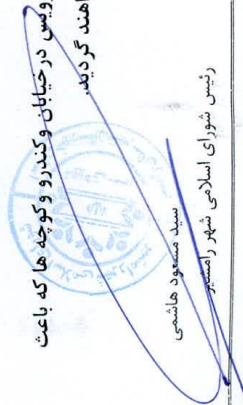 رویس در خیابان وکندرو وکوچه ها که باعث
اهند گردید.
سید مسعود هاشمی
رئیس شورای اسلامی شهر رامشیر